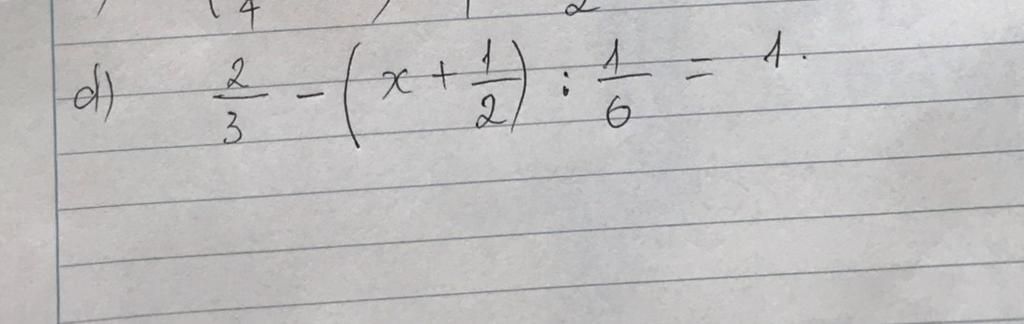 d) 2/3 - (x + 1/2) : 1/6 = 1.